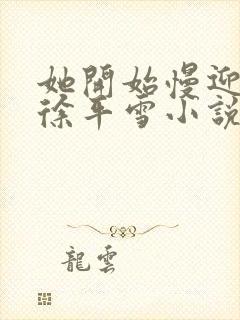 她開始慢迎
徐平雪小說
龍雲